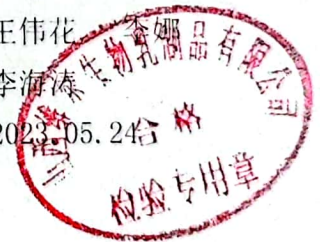 王伟花、李娜
李海涛
2023.05.24
生物乳制品有限公司
合格
检验专用章